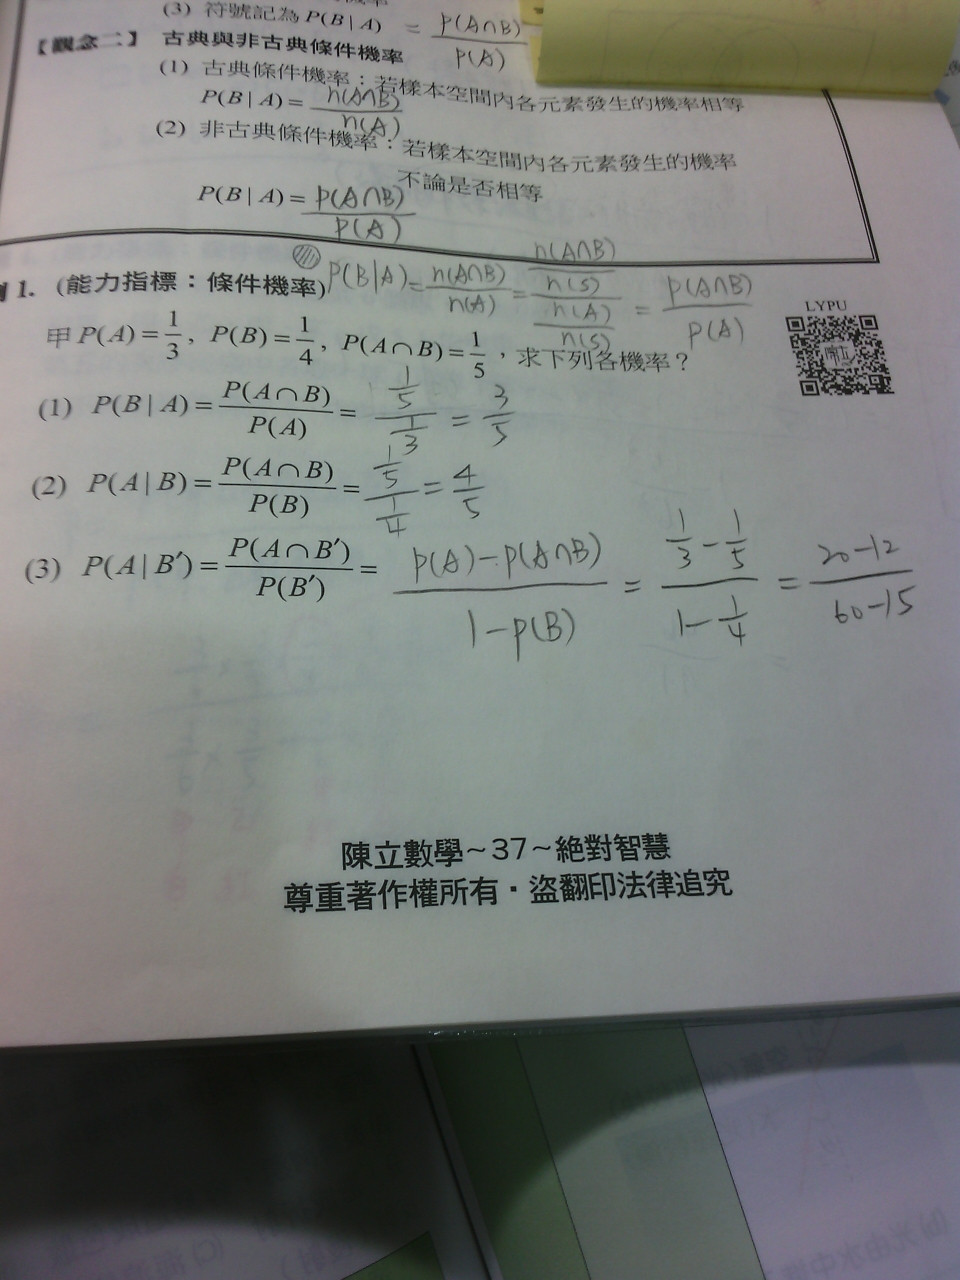 (3) 符號記為 P(B | A) = P(A∩B)/P(A)
【觀念二】 古典與非古典條件機率
(1) 古典條件機率：若樣本空間內各元素發生的機率相等
P(B | A) = n(A∩B)/n(A)
(2) 非古典條件機率：若樣本空間內各元素發生的機率
不論是否相等
P(B | A) = P(A∩B)/P(A)
1. (能力指標：條件機率) P(B|A) = n(A∩B)/n(A) = (n(A∩B)/n(S))/(n(A)/n(S)) = P(A∩B)/P(A)
LYPU
P(A) = 1/3, P(B) = 1/4, P(A∩B) = 1/5，求下列各機率？
(1) P(B | A) = P(A∩B)/P(A) = (1/5)/(1/3) = 3/5
(2) P(A | B) = P(A∩B)/P(B) = (1/5)/(1/4) = 4/5
(3) P(A | B′) = P(A∩B′)/P(B′) = (P(A)-P(A∩B))/(1-P(B)) = (1/3-1/5)/(1-1/4) = (20-12)/(60-15)
陳立數學～37～絕對智慧
尊重著作權所有・盜翻印法律追究